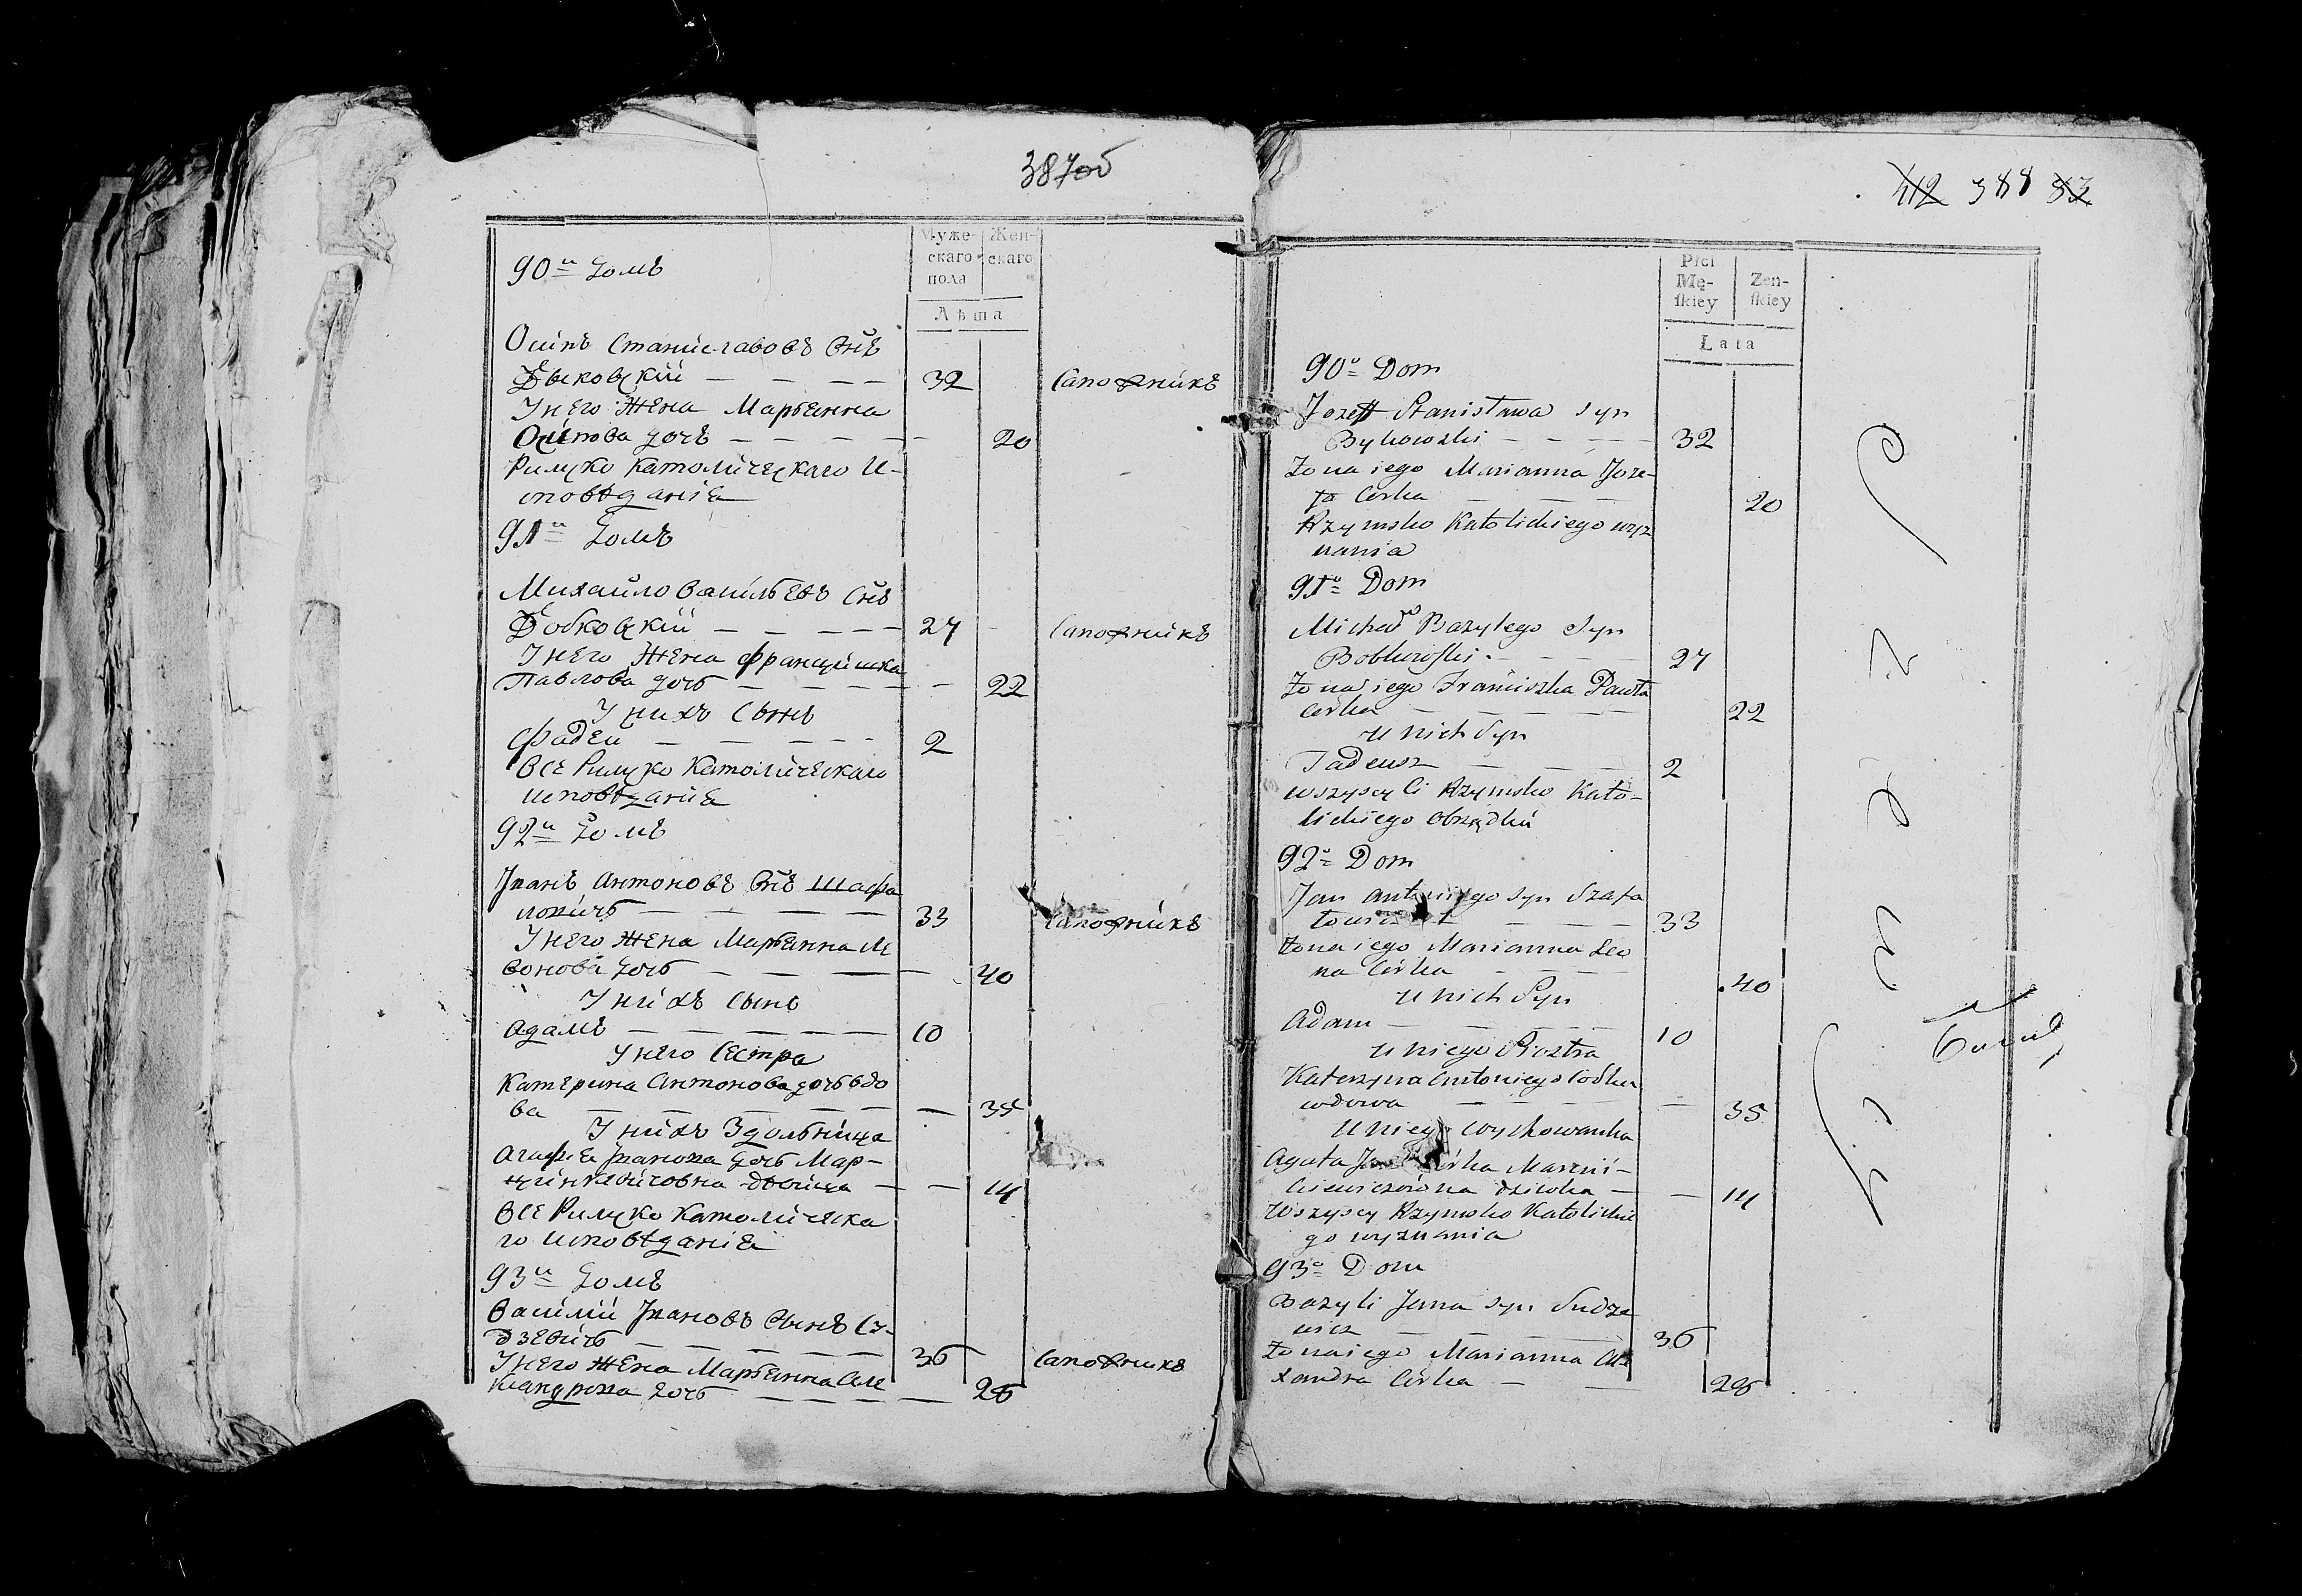 387об
Муже- Жен-
скаго скаго
пола
Лѣта
90й Домъ
Осипъ Станиславовъ Снъ
Быковскій — — — — 32 Сапожникъ
У него Жена Марьянна
Осипова дочь — — — — 20
Римско Католическаго И-
сповѣданія
91й Домъ
Михайло Васильевъ Снъ
Бобковскій — — — — 27 Сапожникъ
У него Жена Францишка
Павлова дочь — — — — 22
У нихъ Сынъ
Фадей — — — — 2
Все Римско Католическаго
исповѣданія
92й Домъ
Иванъ Антоновъ Снъ Шафа
ловичъ — — — — 33 Сапожникъ
У него Жена Марьянна Ле
вонова дочь — — — — 40
У нихъ Сынъ
Адамъ — — — — — 10
У него Сестра
Катерина Антонова дочь вдо
ва — — — — — 35
У нихъ
Агафія Иванова дочь Мар-
— — 14
Все Римско Католическа
го исповѣданія
93й Домъ
Василій Ивановъ Сынъ Су-
дзевичъ — — — — 36 Сапожникъ
У него Жена Марьянна Але
ксандрова дочь — — — — 28
412 388 83
Płci
Mę- Zen-
ſkiey ſkiey
Lata
90o Dom
Jozeff Stanisława Syn
Bykowski — — — — 32
Zona iego Marianna Joze-
fa Corka — — — 20
Rzymsko Katolickiego wyz
nania
91o Dom
Michał Bazylego Syn
Bobkowſki — — — 27
Zona iego Franciszka Pawła
Corka — — — — 22
U nich Syn
Tadeusz — — — 2
wszyscy Ci Rzymsko Kato-
lickiego Obrządku
92o Dom
Jan Antoniego Syn Szafa
— — — 33
Zona iego Marianna Leo
na Corka — — — 40
U nich Syn
Adam — — — — 10
U niego Siostra
Katerzyna Antoniego Corka
wdowa — — — — 35
U niego Wychowanka
Agata Corka Marcin-
kiewiczowna dziewka — — 14
Wszyscy Rzymsko Katolickie
go wyznania
93o Dom
Bazyli Jana Syn Sudze
wicz — — — — 36
Zona iego Marianna Ale
xandra Corka — — 28